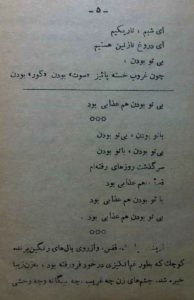 - ۵ -
ای شبم ، تاریکیم
ای دروغ نازنین هستیم
بی تو بودن ،
چون غروب خسته پائیز «سوت» بودن «کور» بودن
بی تو بودن هم عذابی بود
○○○
باتو بودن ، بی‌تو بودن
بی تو بودن ، باتو بودن
سرگذشت روزهای رفته‌ام
هم عذابی بود
با تو بودن هم عذابی بود
بی تو بودن هم عذابی بود .
○○○
قفس، وآرزوی بال‌های رنگین پرنده
کوچک که بطور غم‌انگیزی درخود فرورفته بود ،
خیره شد. چشم‌های زن چه غریب، چه بیگانه وچه وحشی